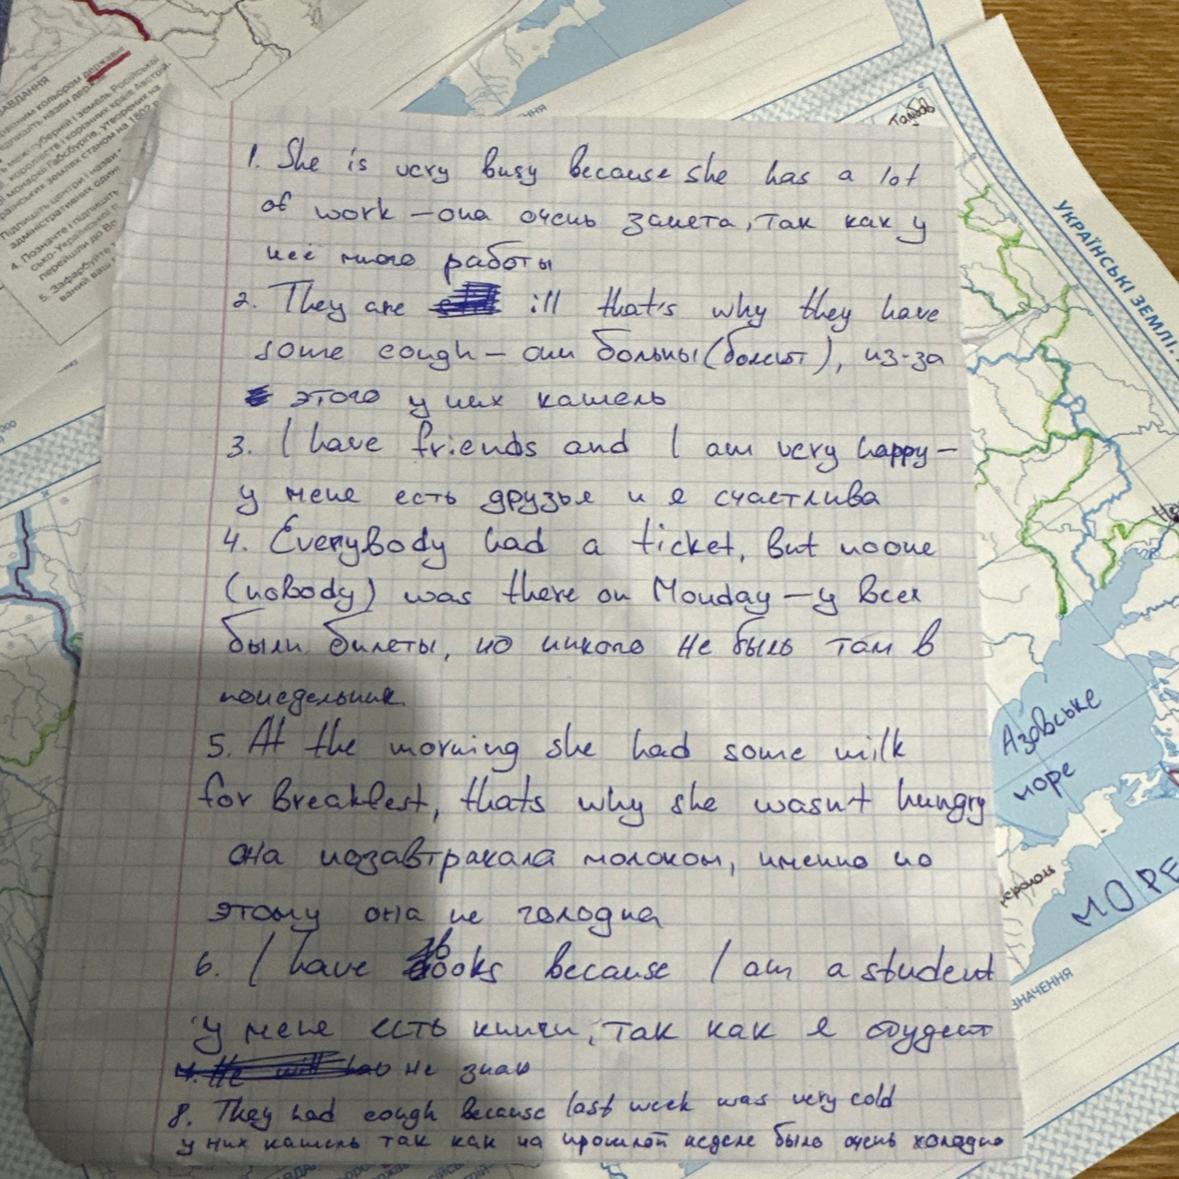 АВДАННЯ
УКРАЇНСЬКІ ЗЕМЛІ.
Тамбов
1. She is very busy because she has a lot
of work – она очень занета, так как у
неё много работы
2. They are ill that's why they have
some cough – они больны (болеют), из-за
этого у них кашель
3. I have friends and I am very happy –
у мене есть друзья и я счастлива
4. Everybody had a ticket, but noone
(nobody) was there on Monday – у всех
были билеты, но никого не быль там в
понедельник
5. At the morning she had some milk
for breakfest, thats why she wasnt hungry
она позавтракала молоком, именно по
этому она не голодна
6. I have books because I am a student
у мене есть книги, так как я студент
не знаю
8. They had cough because last week was very cold
у них кашель так как на прошлой неделе было очень холодно
Азовське
море
МОРЕ
ЗНАЧЕННЯ